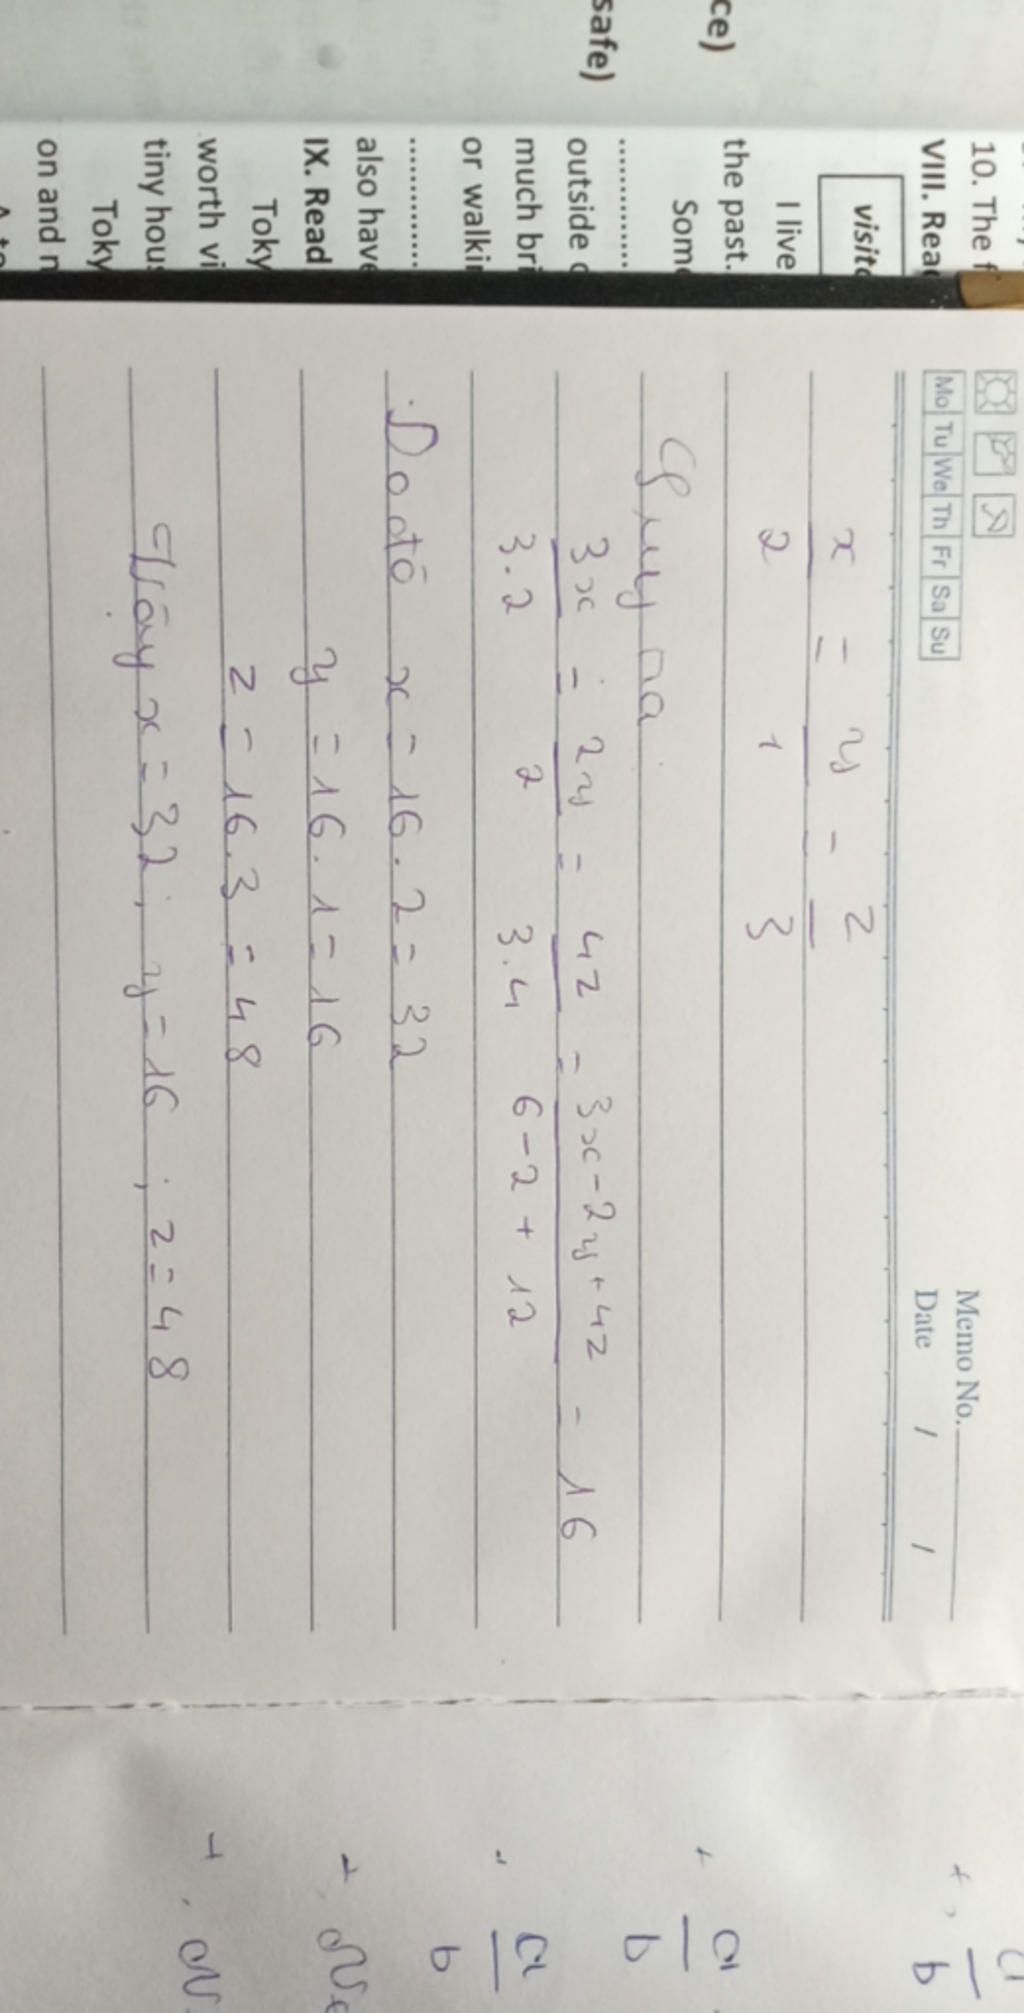 ce)
safe)
10. The f
VIII. Read
visito
I live
the past.
Some
..............
outside o
much bri
or walkin
..............
also have
IX. Read
Toky
worth vi
tiny hous
Toky
on and n
Mo Tu We Th Fr Sa Su
Memo No.
Date / /
x/2 = y/1 = z/3
Suy ra
3x/3.2 = 2y/2 = 4z/3.4 = 3x-2y+4z/6-2+12 = 16
Do đó x = 16.2 = 32
y = 16.1 = 16
z = 16.3 = 48
Vậy x = 32; y = 16; z = 48
+, a/b
+ a/b
- a/b